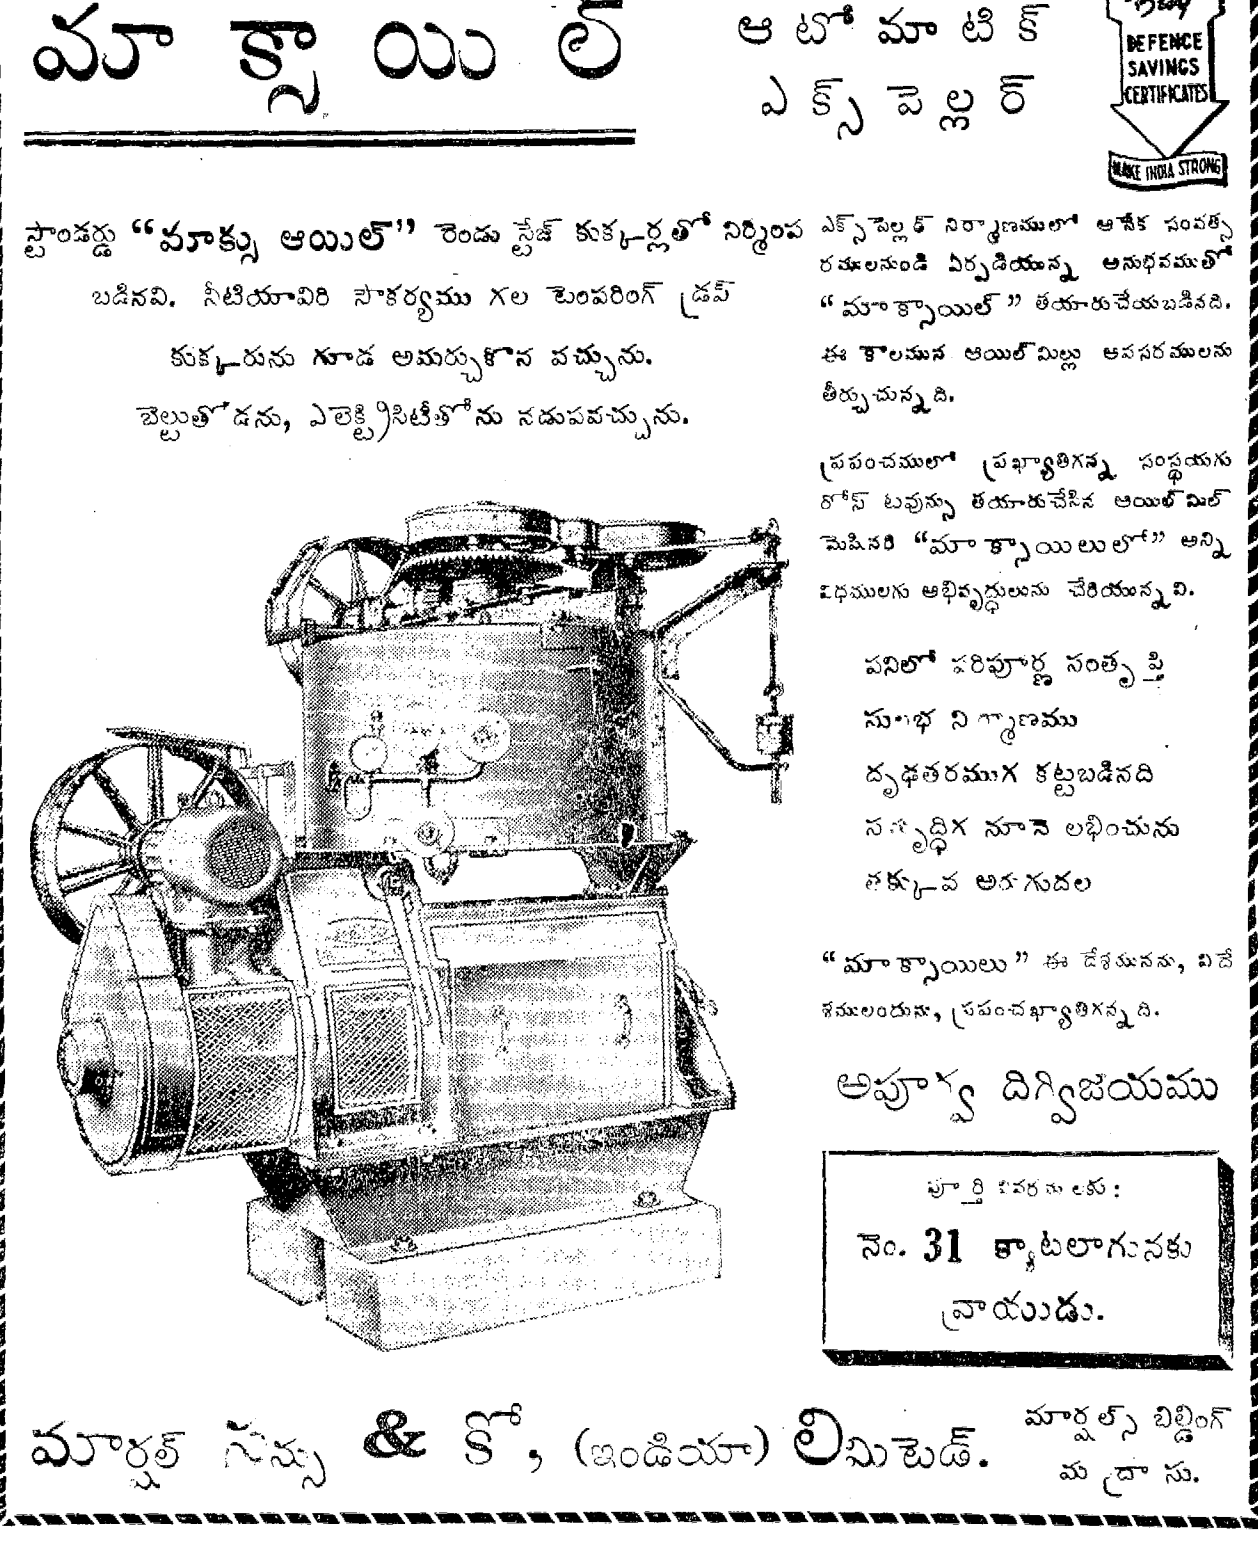 మాక్సాయిల్
ఆటోమాటిక్
ఎక్స్‌పెల్లర్
Buy
DEFENCE
SAVINGS
CERTIFICATES
MAKE INDIA STRONG
స్టాండర్డు “మాక్సు ఆయిల్” రెండు స్టేజ్ కుక్కర్లతో నిర్మింప
బడినవి. నీటియావిరి సౌకర్యము గల టెంపరింగ్ డ్రప్
కుక్కరును గూడ అమర్చుకొన వచ్చును.
బెల్టుతోడను, ఎలెక్ట్రిసిటీతోను నడుపవచ్చును.
ఎక్స్‌పెల్లర్ నిర్మాణములో అనేక సంవత్స
రములనుండి ఏర్పడియున్న అనుభవముతో
“మాక్సాయిల్” తయారుచేయబడినది.
ఈ కాలమున ఆయిల్‌మిల్లు అవసరములను
తీర్చుచున్నది.
ప్రపంచములో ప్రఖ్యాతిగన్న సంస్థయగు
రోస్ టవున్సు తయారుచేసిన ఆయిల్‌మిల్
మెషినరి “మాక్సాయిలులో” అన్ని
విధములగు అభివృద్ధులును చేరియున్నవి.
పనిలో పరిపూర్ణ సంతృప్తి
సులభ నిర్మాణము
దృఢతరముగ కట్టబడినది
సమృద్ధిగ నూనె లభించును
తక్కువ అరుగుదల
“మాక్సాయిలు” ఈ దేశమునను, విదే
శములందును, ప్రపంచఖ్యాతిగన్నది.
అపూర్వ దిగ్విజయము
పూర్తి వివరములకు:
నెం. 31 క్యాటలాగునకు
వ్రాయుడు.
మార్షల్ సన్సు & కో, (ఇండియా) లిమిటెడ్.
మార్షల్స్ బిల్డింగ్
మద్రాసు.